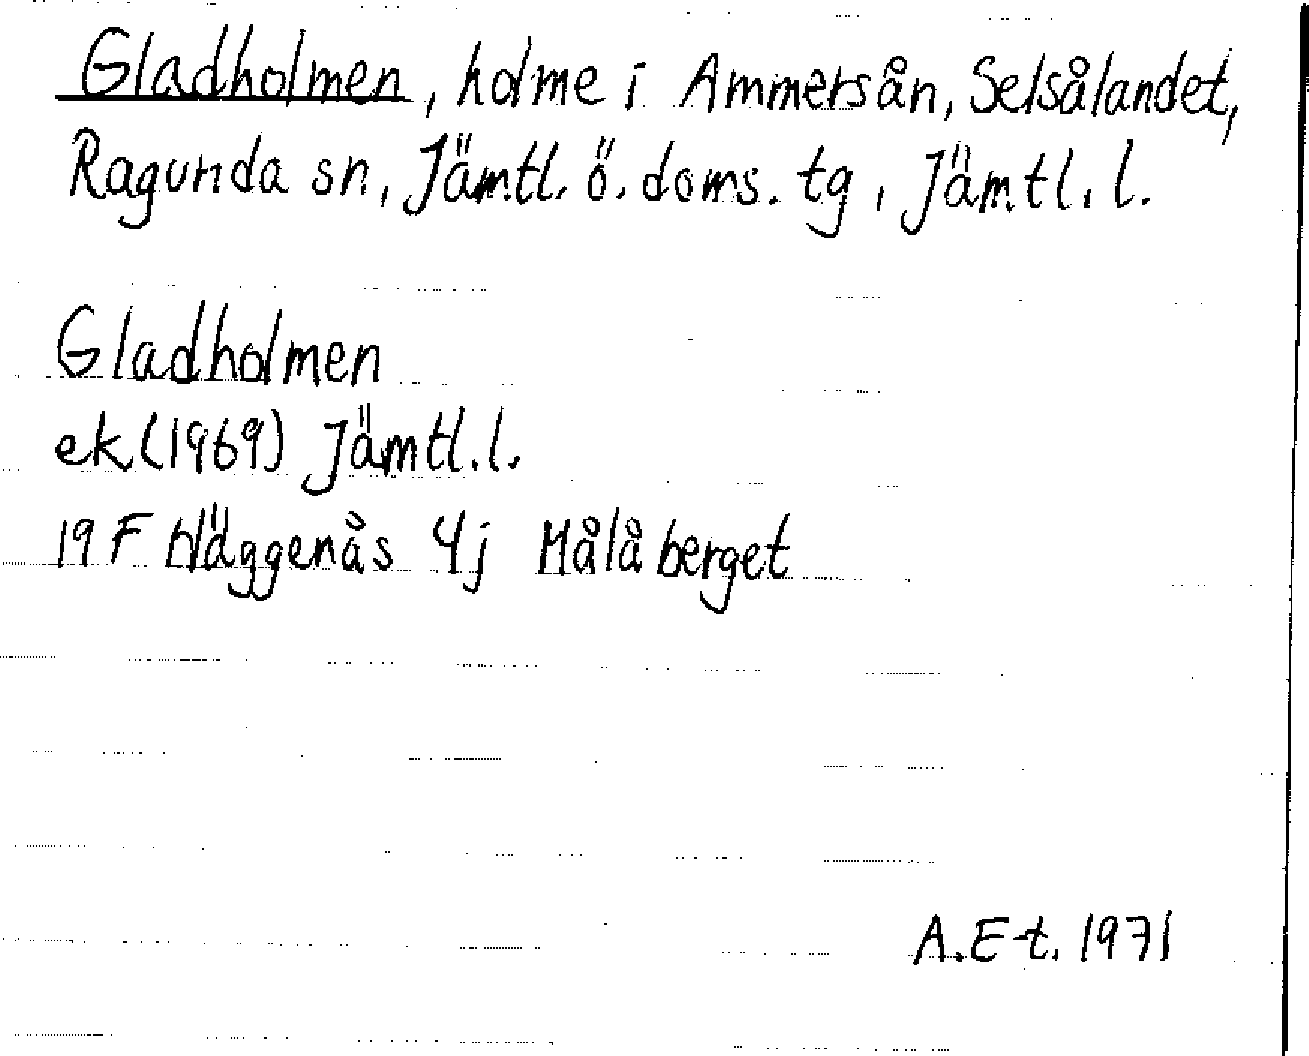 Gladholmen, holme i Ammersån, Selsålandet,
Ragunda sn, Jämtl. ö. doms. tg, Jämtl. l.
Gladholmen
ek (1969) Jämtl. l.
19 F Häggenås 4j Målåberget
A. E-t. 1971